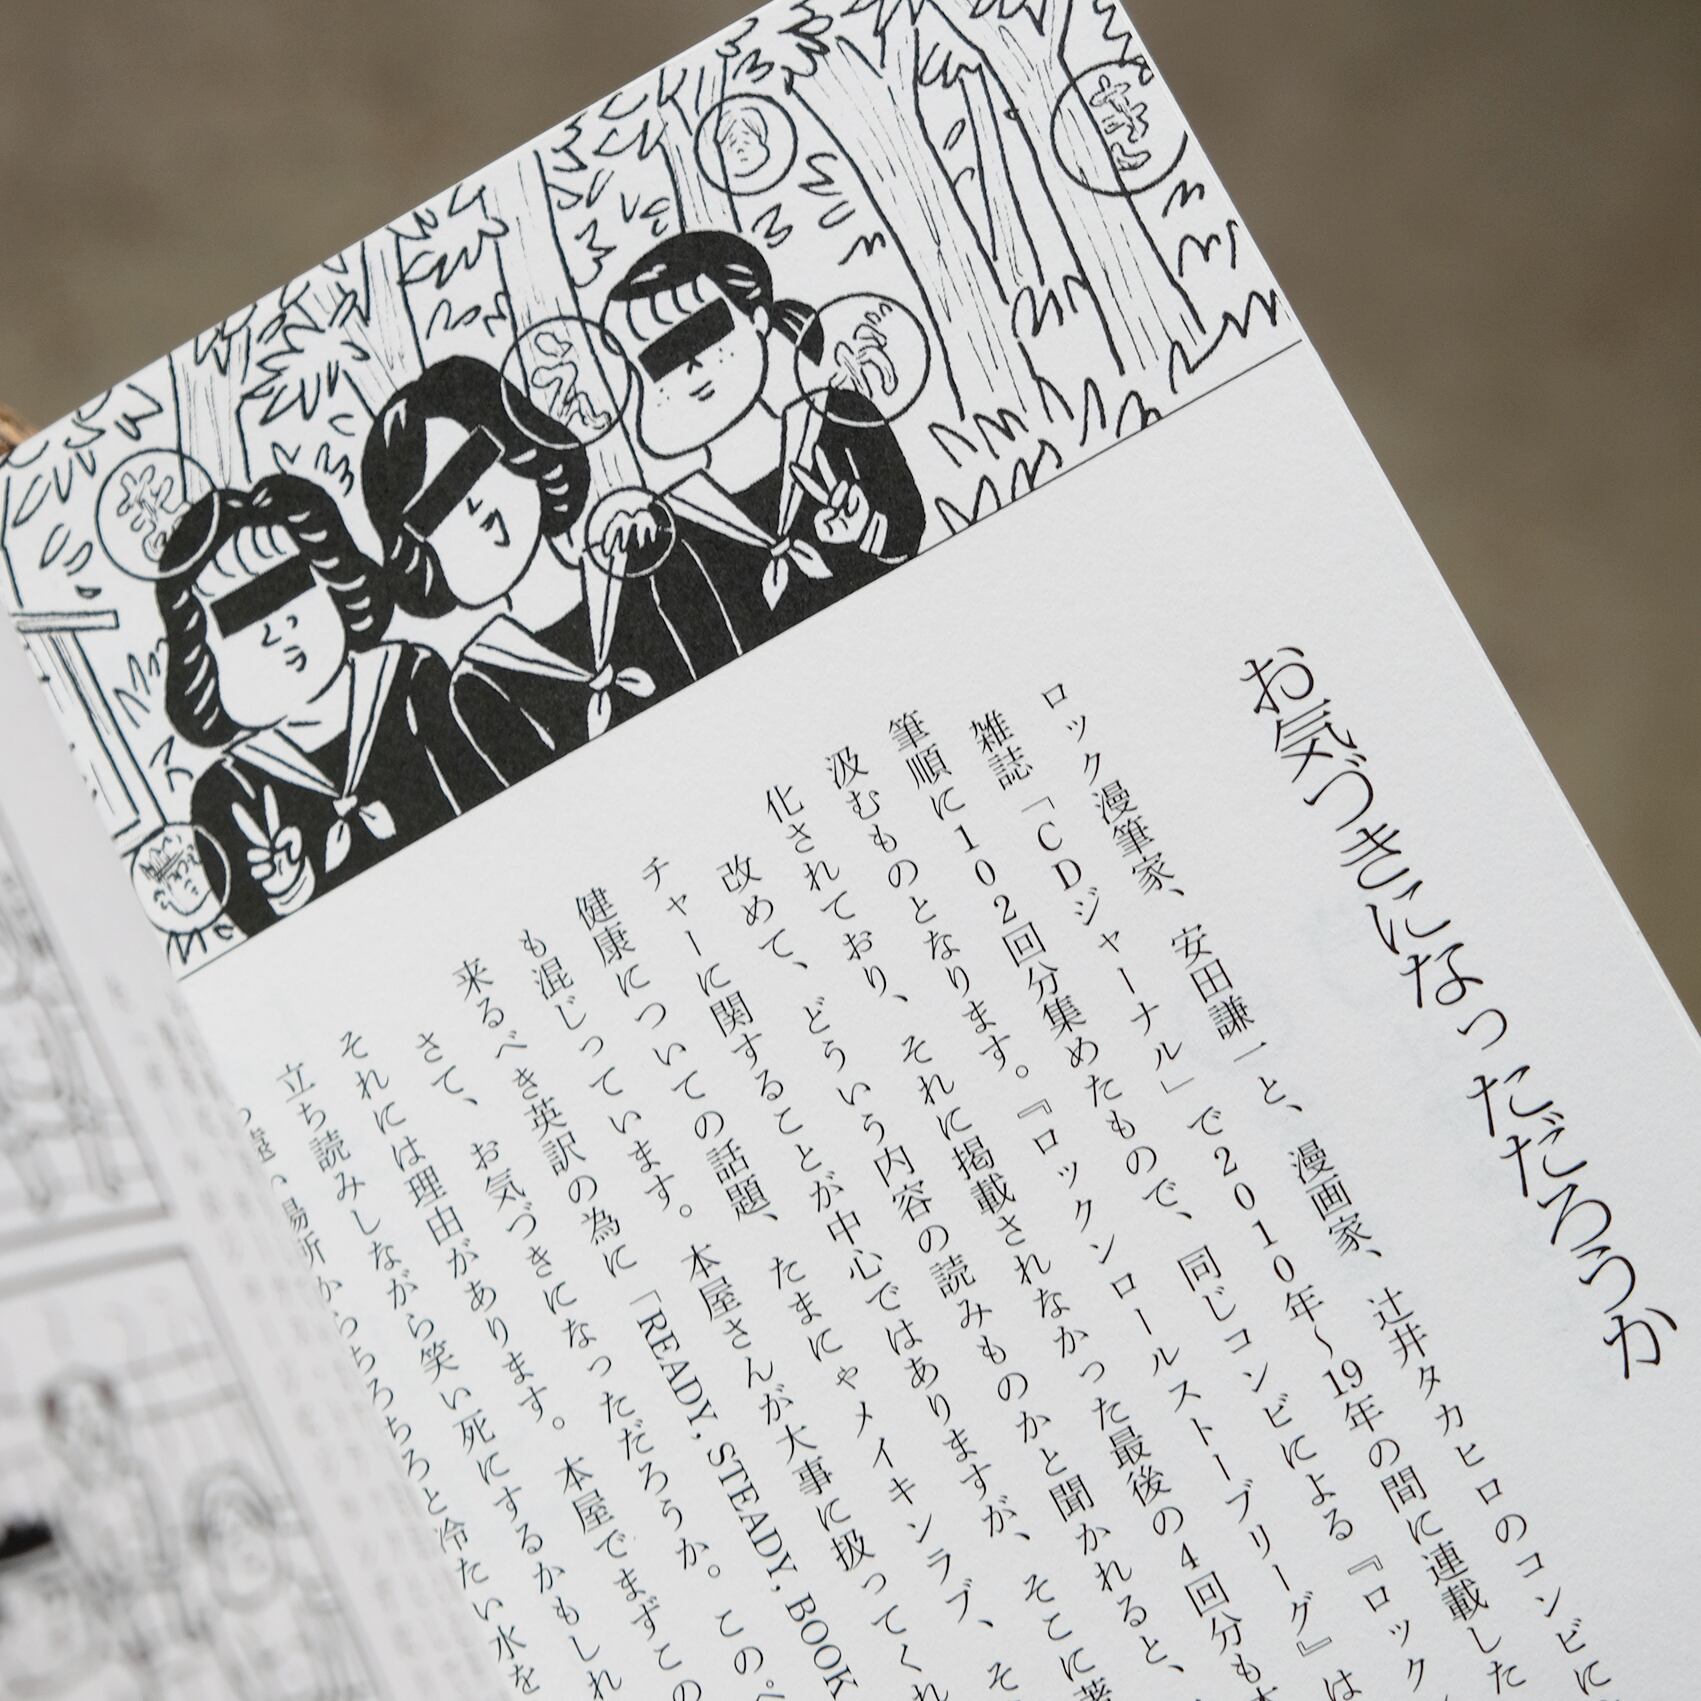 お気づきになっただろうか
ロック漫筆家、安田謙一と、漫画家、辻井タカヒロのコンビに
雑誌「CDジャーナル」で2010年〜19年の間に連載した
筆順に102回分集めたもので、同じコンビによる『ロック
汲むものとなります。『ロックンロールストーブリーグ』は
化されており、それに掲載されなかった最後の4回分も
改めて、どういう内容の読みものかと聞かれると、
チャーに関することが中心ではありますが、そこに著
健康についての話題、たまにゃメイキンラブ、そ
も混じっています。本屋さんが大事に扱ってくれ
来るべき英訳の為に「READY, STEADY, BOOK
さて、お気づきになっただろうか。この
それには理由があります。本屋でまずこの
立ち読みしながら笑い死にするかもしれ
場所からちろちろと冷たい水を